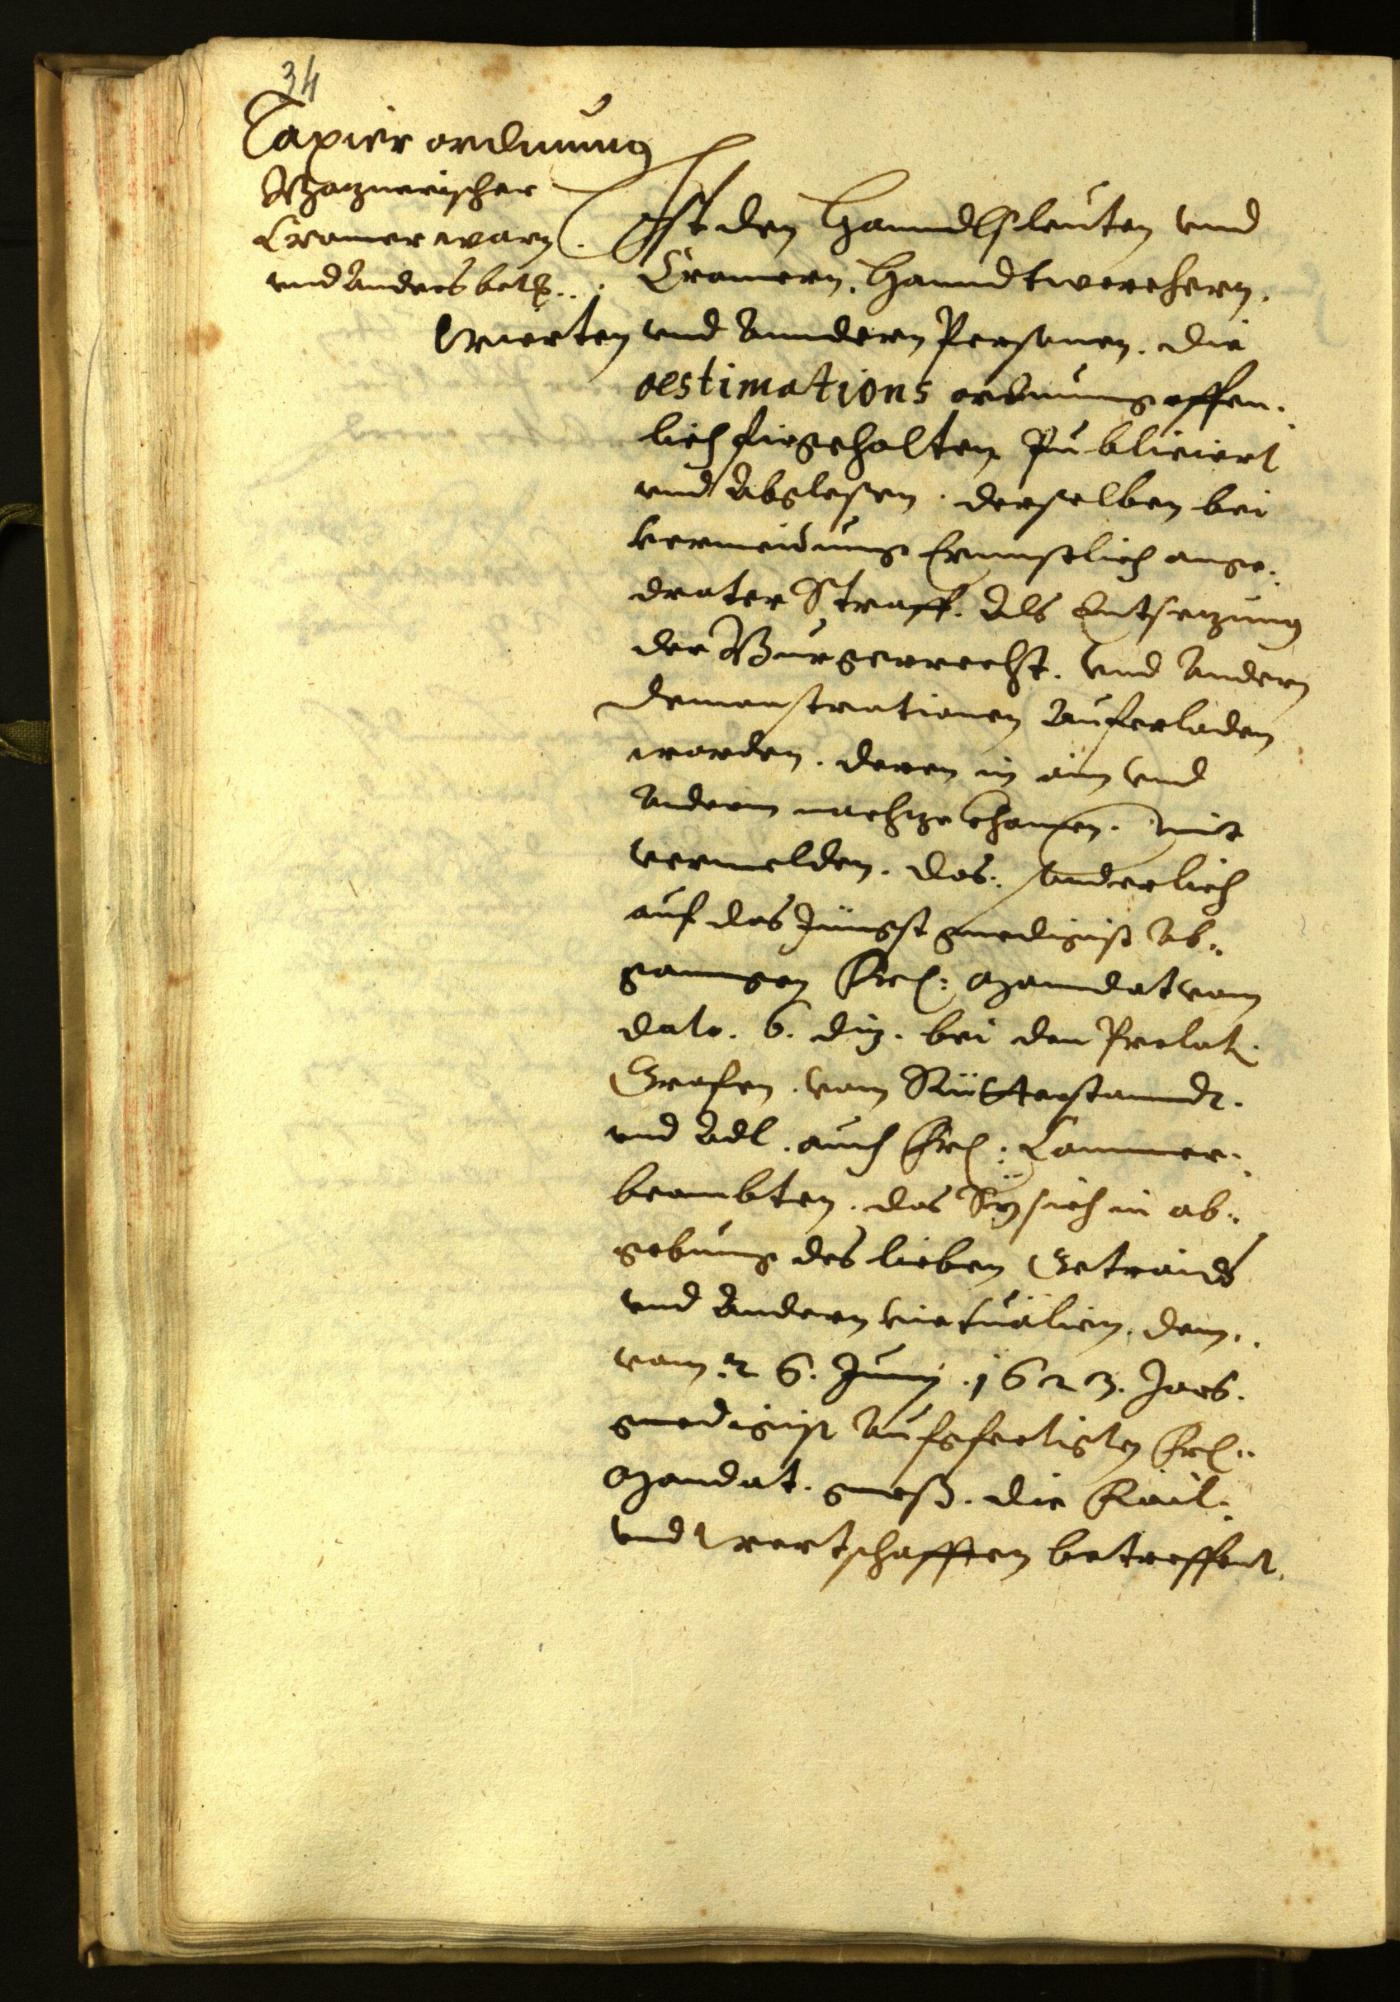 34
Taxier ordnung
Wagnerischer
Cramer warn
und Anders betr.
Ist den Hanndlsleuten und
Cramern, Hanndtwerchern,
Wierten und Anndern Personen, die
aestimations ordnung offen:
lich fürgehalten Publiciert
und Abglesen, derselben bei
vermeidung Ernnstlich ange:
droter Straff, Als Entsezung
der Burgerrecht, und Andern
demonstrationen Auferladen
worden, deren in ain und
Anderm nachzekhomen, mit
vermelden, das sonderlich
auf das Jüngst gnedigist Ab:
gangen Frl: Mandat vom
dato 6. diz, bei den Prelat,
Grafen, vom Rütterstanndt,
und Adl, auch Frl: Cammer:
beambten, das Sy sich in ab:
gebung des lieben Getraids
und Andern victualien, dem
vom 26. Juny 1623. Jars
gnedigist Ausgfertigten Frl:
Mandat gmeß, die Fäil:
und Wertschafften betreffent,